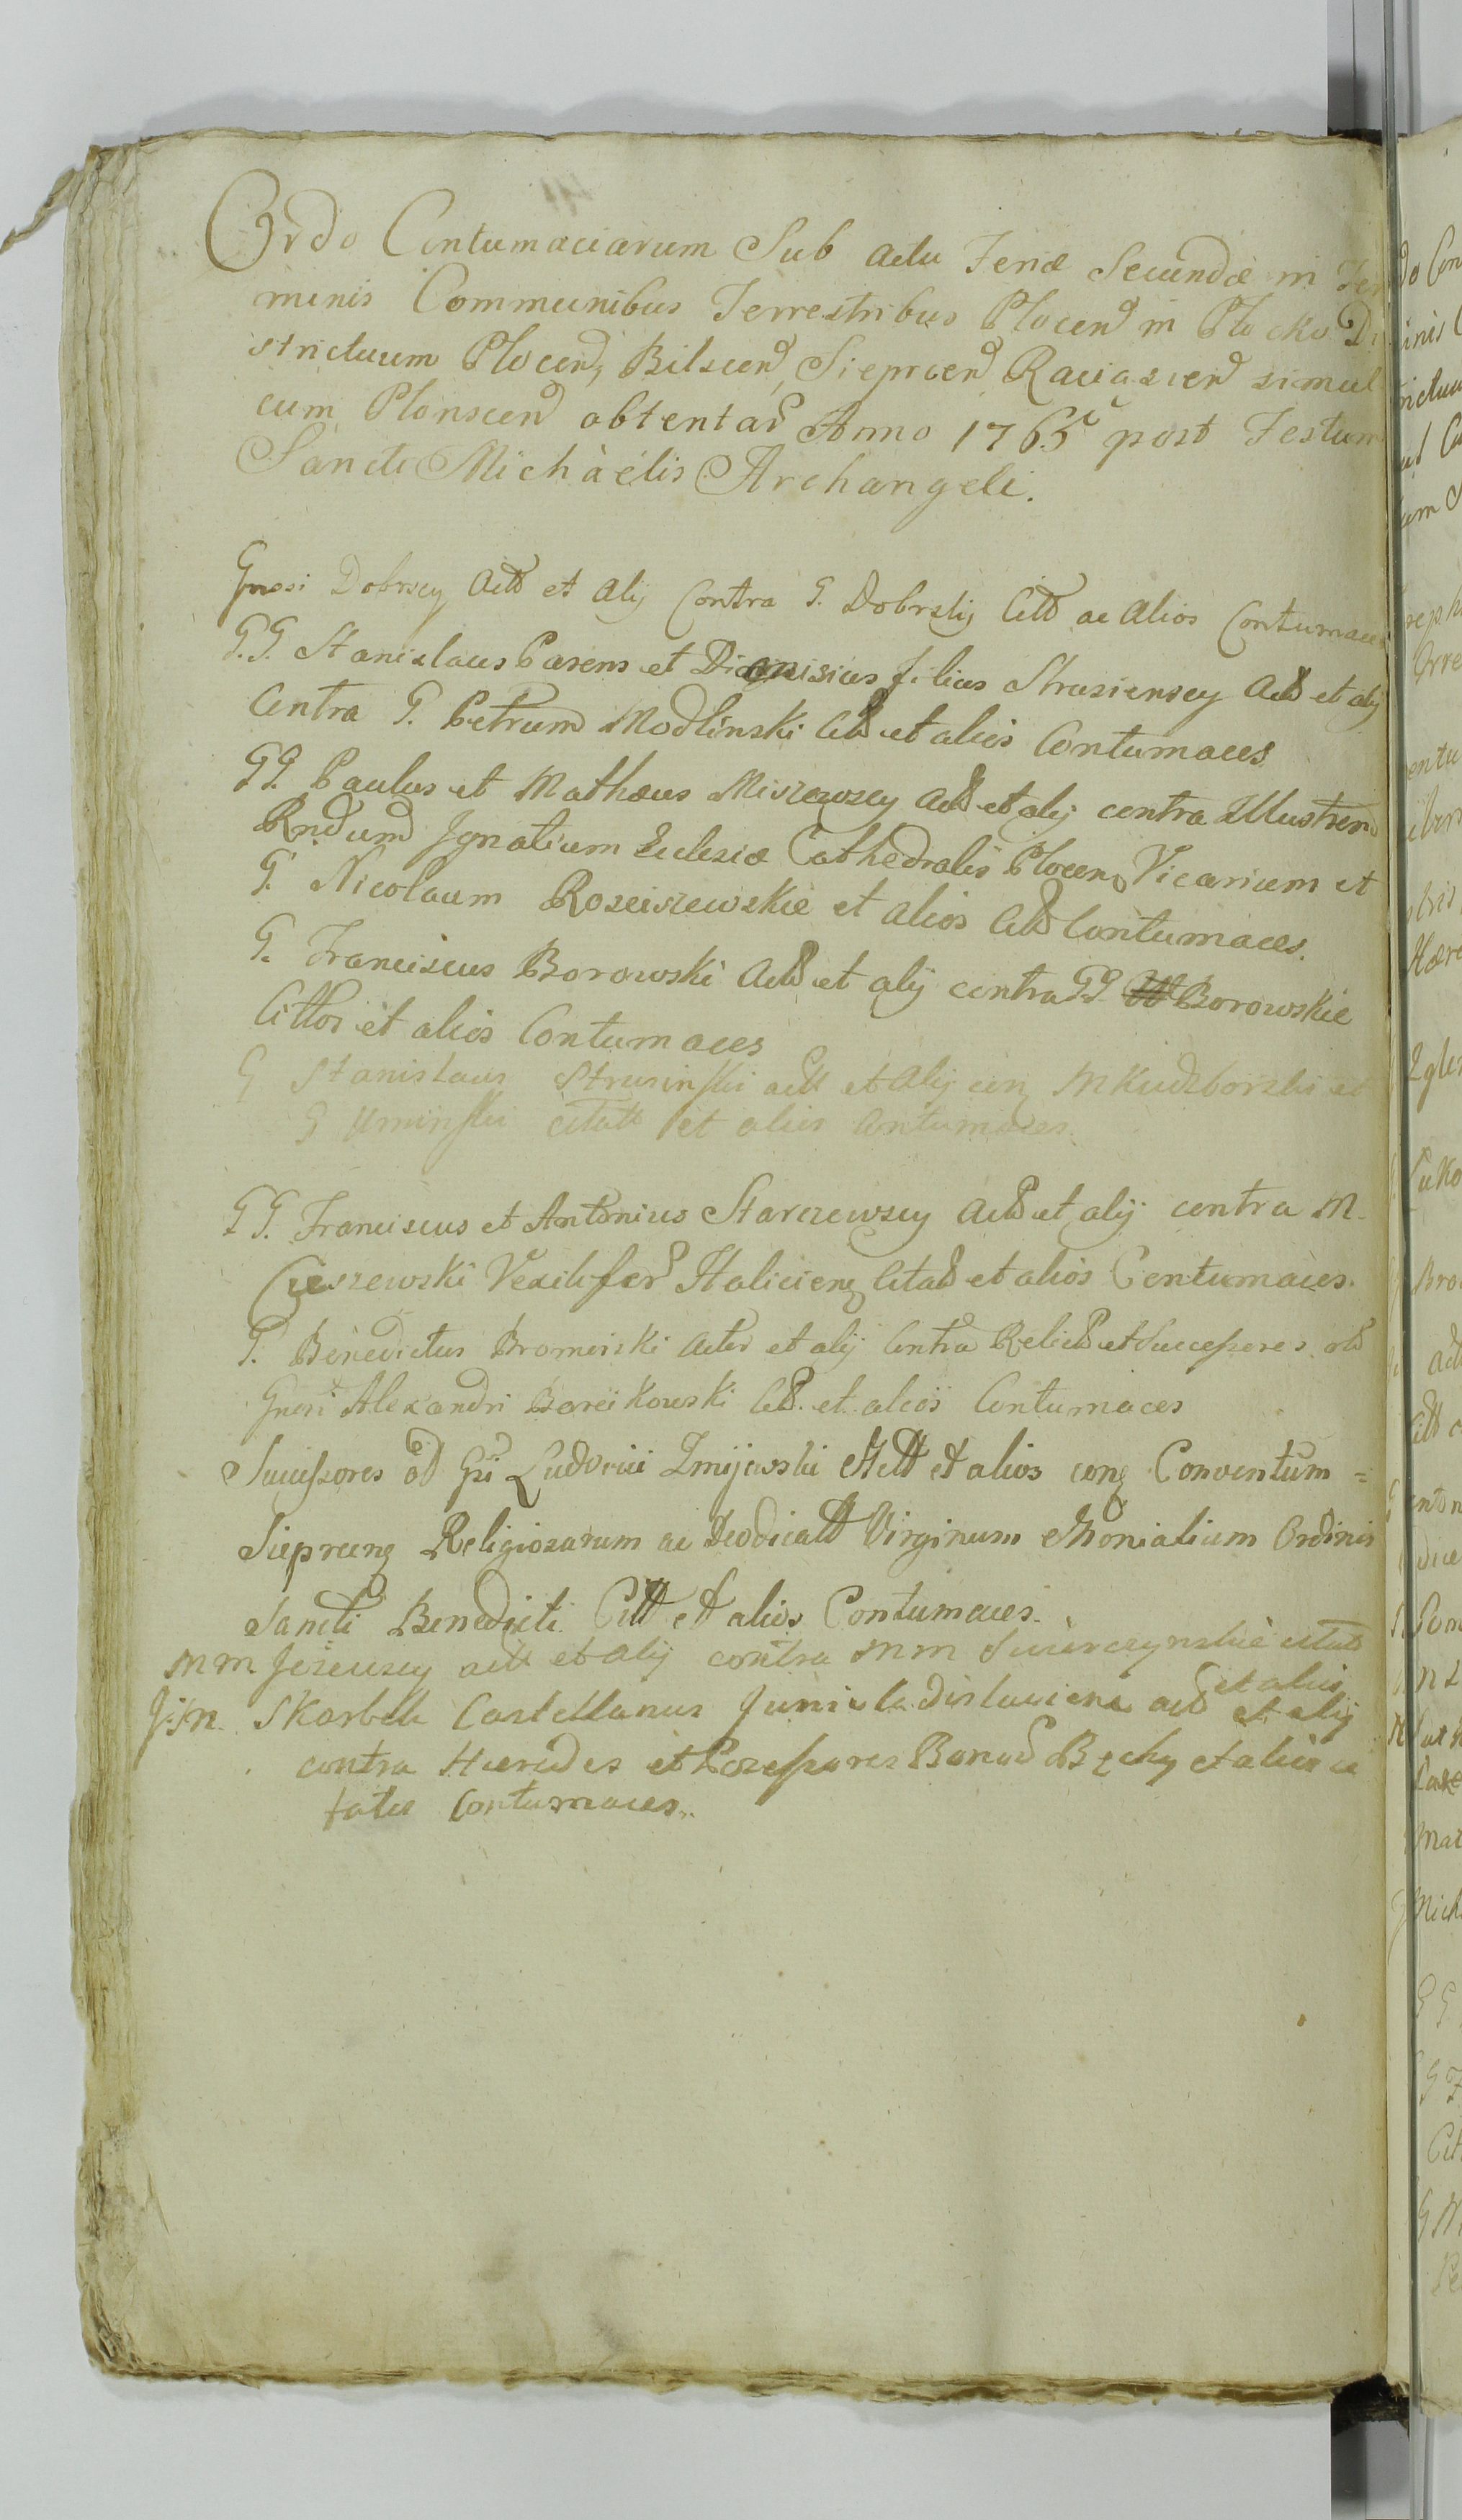 Ordo Contumaciarum Sub actu Feriæ Secundæ in Ter
minis Communibus Terrestribus Plocen in Plocko Di
strictuum Plocen, Bilscen, Sieprcen Raciazcen simul
cum Plonscen obtentar Anno 1765 post Festum
Sancti Michàélis Archangeli.
Gnosi Dobrscy Actt et Alij Contra G. Dobrskij Citt ac Alios Contumaces
G.G. Stanislaus Parens et Dionisius filius Strusienscy Actt et alij
Contra G. Petrum Modlinski Citt et alios Contumaces
GG. Paulus et Mathæus Miszewscy Actt et alij contra Illustrem
Rndum Ignatium Eclesiæ Cathedralis Plocen Vicarium et
G. Nicolaum Rosciszewskie et alios Citt Contumaces.
G. Franciscus Borowski Actt et alij contra GG Borowskie
Cittos et alios Contumaces
G Stanislaus Strusinski actt et Alij con M Kudzborski et
G Uminski citatt et alios Contumaces.
GG. Franciscus et Antonius Starczewscy Actt et alij contra M.
Cieszewski Vexilifer Haliciens Citatt et alios Contumaces.
G. Benedictus Bromirski Actor et alij Contra Relictt et Successores ol
Gnosi Alexandri Borcikowski Citt. et alios Contumaces
Successores ol Gsi Ludovici Zmijewski Actt et alios con Conventum =
Sieprcens Religiosarum ac Deodicatt Virginum Monialium Ordinis
Sancti Benedicti Citt et alios Contumaces.
MM. Jezewscy actt et Alij contra MM Swierczynskie citatt
et alios
J:M. Skarbek Castellanus Juni Vladislaviens actt et alij
contra Hæredes et Possessores Bonor Bechy et alios ci
tatos Contumaces.